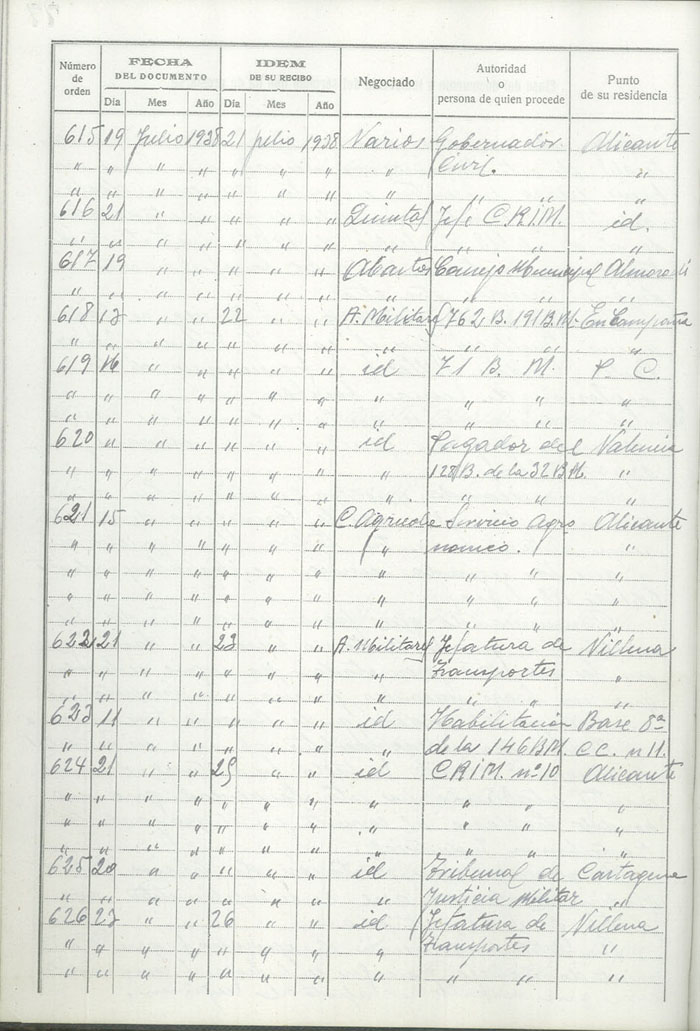 Número de orden | FECHA DEL DOCUMENTO | IDEM DE SU RECIBO | Negociado | Autoridad o persona de quien procede | Punto de su residencia
Día Mes Año Día Mes Año
615 19 Julio 1938 21 Julio 1938 Varios Gobernador Alicante
" " " " " " " " Civil. "
" " " " " " " " " " "
616 21 " " " " " Quintas Jefe C.R.I.M. id.
" " " " " " " " " " "
617 19 " " " " " Abastos Consejo Municipal Almoradi
" " " " " " " " " " "
618 13 " " 22 " " A. Militares 762 B. 191 B.M. En Campaña
" " " " " " " " " " "
619 16 " " " " " id 71 B. M. P. C.
" " " " " " " " " " "
" " " " " " " " " " "
620 " " " " " " id Pagador del Valencia
" " " " " " " " 128 B. de la 32 B.M. "
" " " " " " " " " " "
621 15 " " " " " C. Agricola Servicio Agro Alicante
" " " " " " " " nomico. "
" " " " " " " " " " "
" " " " " " " " " " "
" " " " " " " " " " "
622 21 " " 23 " " A. Militares Jefatura de Villena
" " " " " " " " Transportes "
" " " " " " " " " " "
623 11 " " " " " id Habilitación Base 8ª
" " " " " " " " de la 146 B.M. C.C. nº 11.
624 21 " " 25 " " id C.R.I.M. nº 10 Alicante
" " " " " " " " " " "
" " " " " " " " " " "
" " " " " " " " " " "
625 20 " " " " " id Tribunal de Cartagena
" " " " " " " " Justicia Militar "
626 23 " " 26 " " id Jefatura de Villena
" " " " " " " " Transportes "
" " " " " " " " " " "